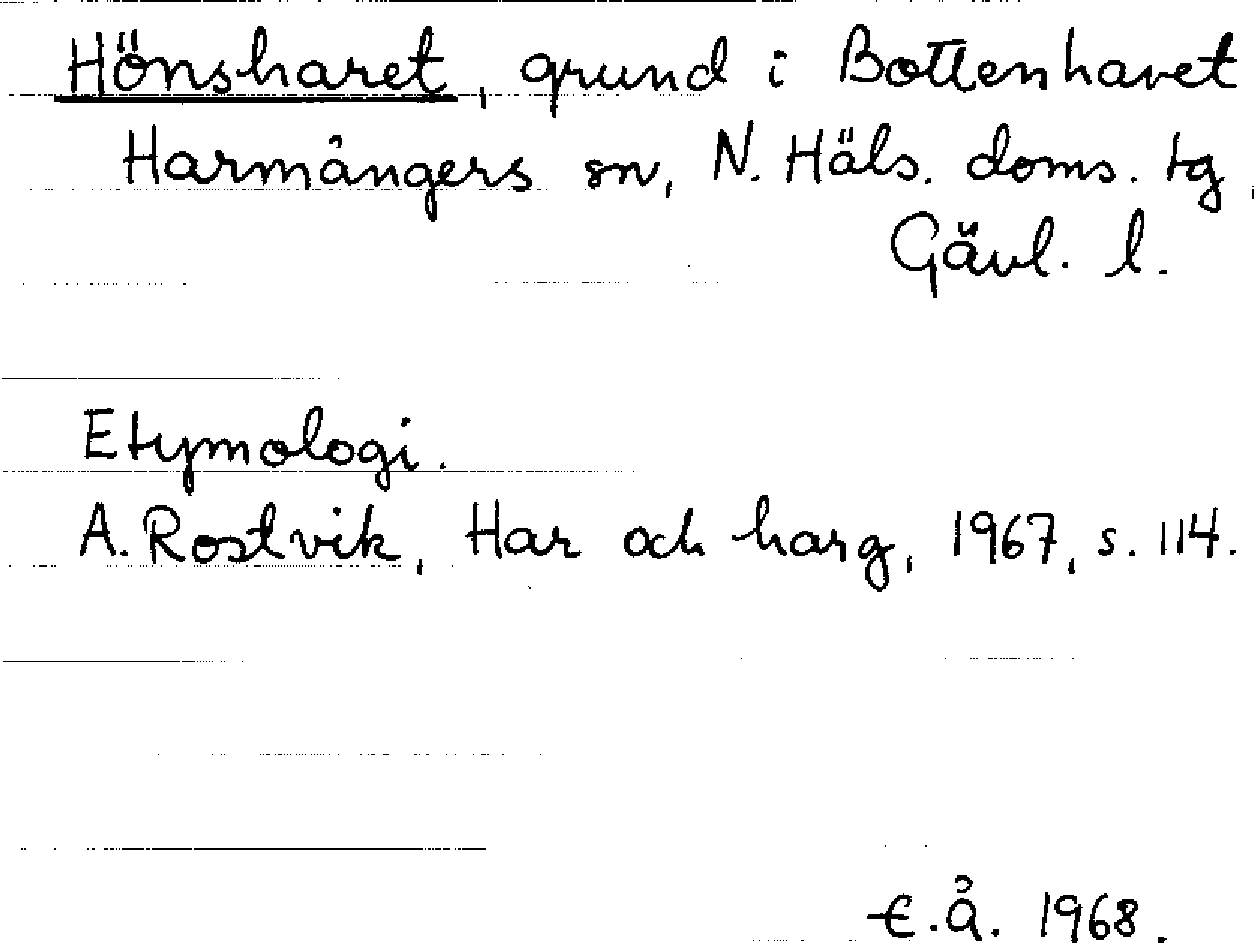 Hönsharet, grund i Bottenhavet
Harmångers sn, N. Häls. doms. tg,
Gävl. l.
Etymologi.
A. Rostvik, Har och harg, 1967, s. 114.
E.Å. 1968.